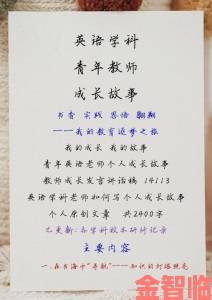 英语学科
青年教师
成长故事
书香 实践 思语 翱翔
——我的教育逐梦之旅
我的成长 我的故事
青年英语老师个人成长故事
教师成长发言讲话稿 14113
英语学科老师如何写个人成长故事
个人原创文章 共2400字
已更新:各学科校本研修记录
主要内容
一.在书海中"导航"----知识的灯塔照亮
金智临